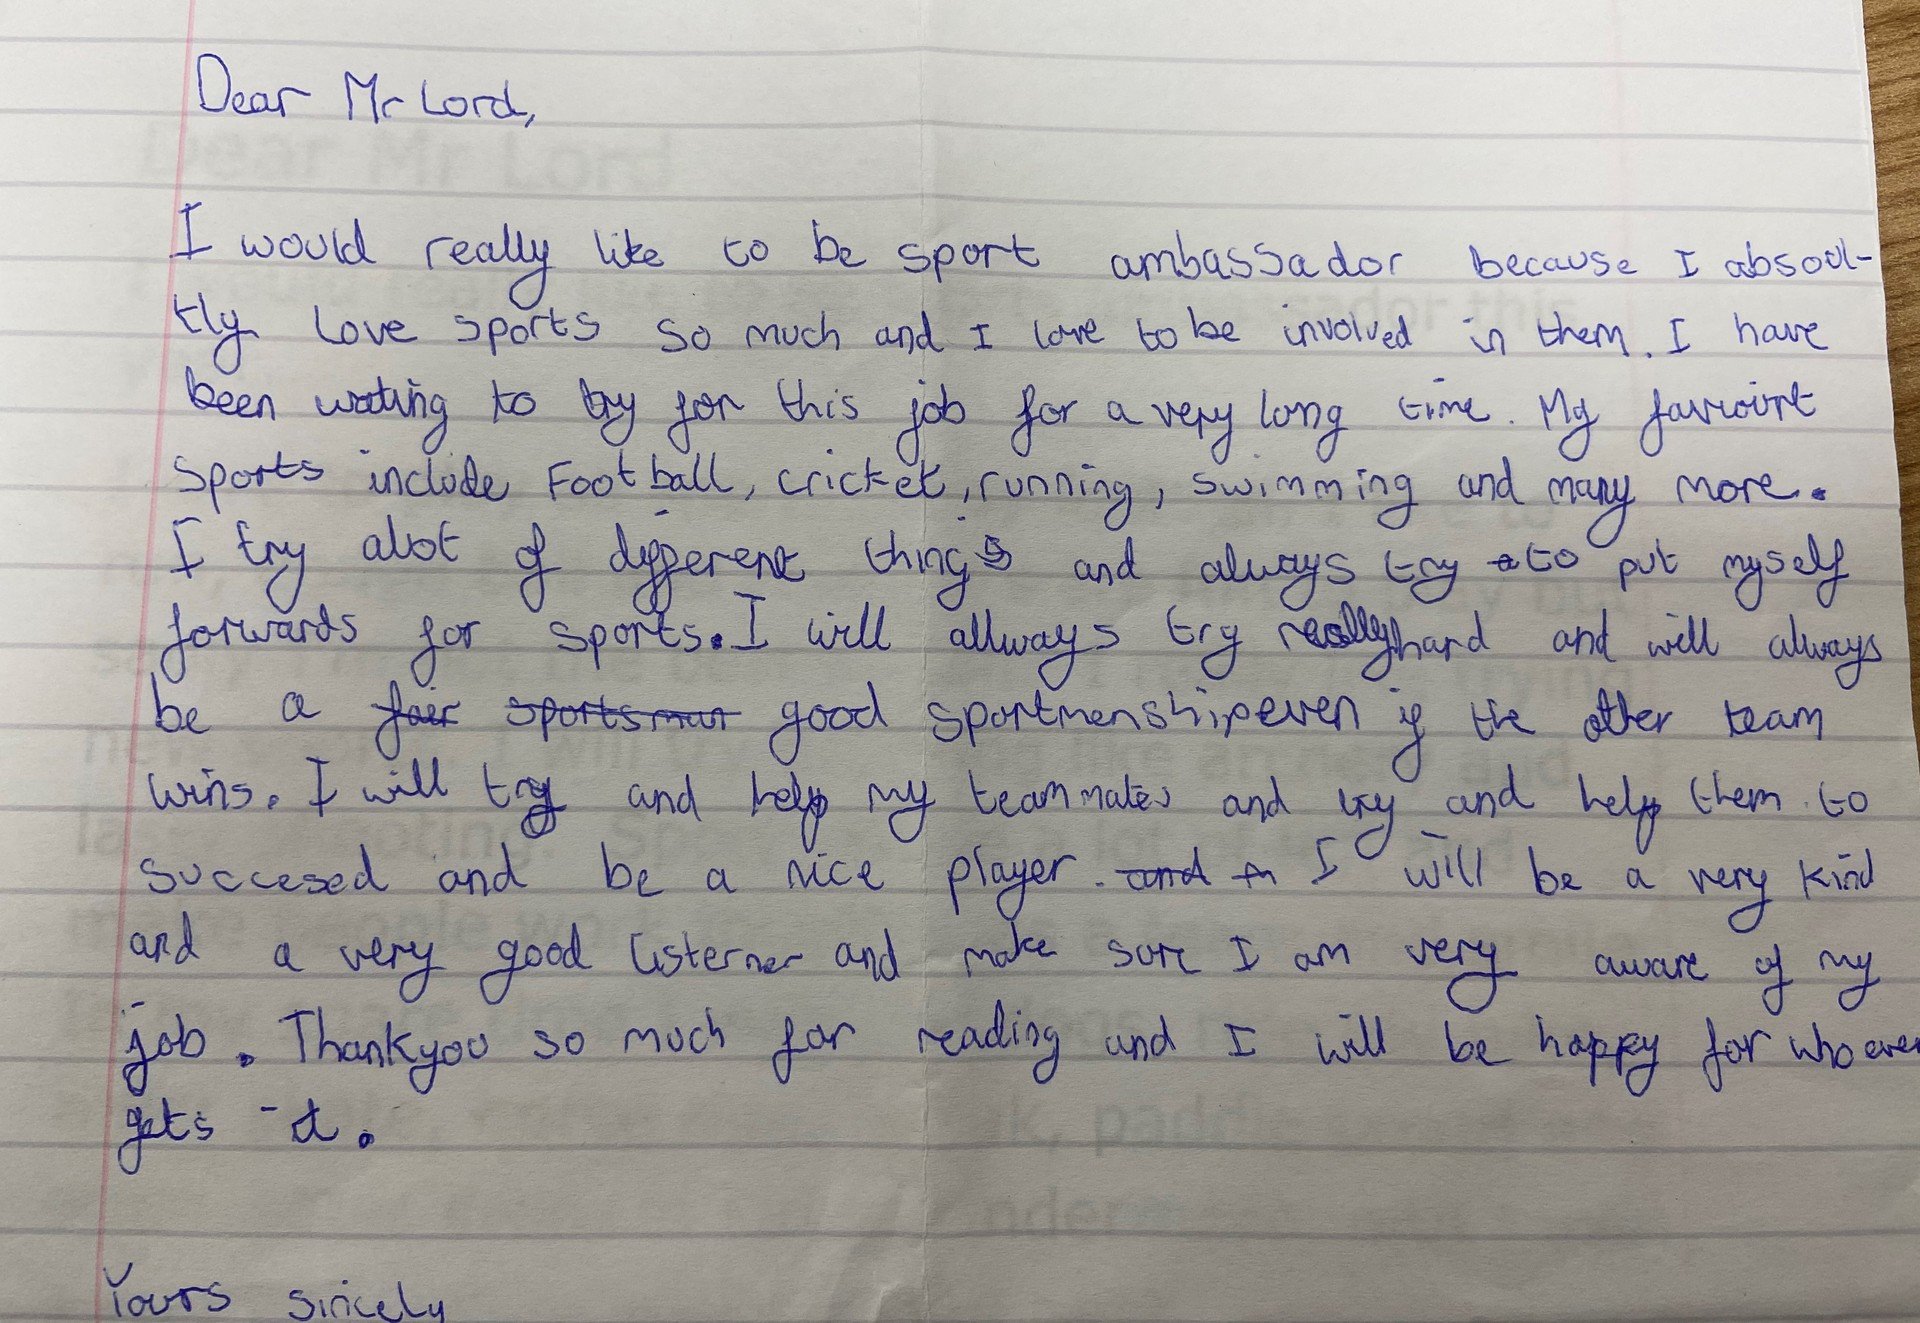 Dear Mr Lord,
I would really like to be sport ambassador because I absoul-
tly love sports so much and I love to be involved in them. I have
been waiting to try for this job for a very long time. My faviourt
sports include Football, cricket, running, swimming and many more.
I try alot of different things and always try to put myself
forwards for sports. I will allways try really hard and will always
be a fair sportsman good sportmenship even if the other team
wins. I will try and help my teammates and try and help them to
succesed and be a nice player. and I will be a very kind
and a very good listerner and make sure I am very aware of my
job. Thankyou so much for reading and I will be happy for who ever
gets it.
Yours sincely